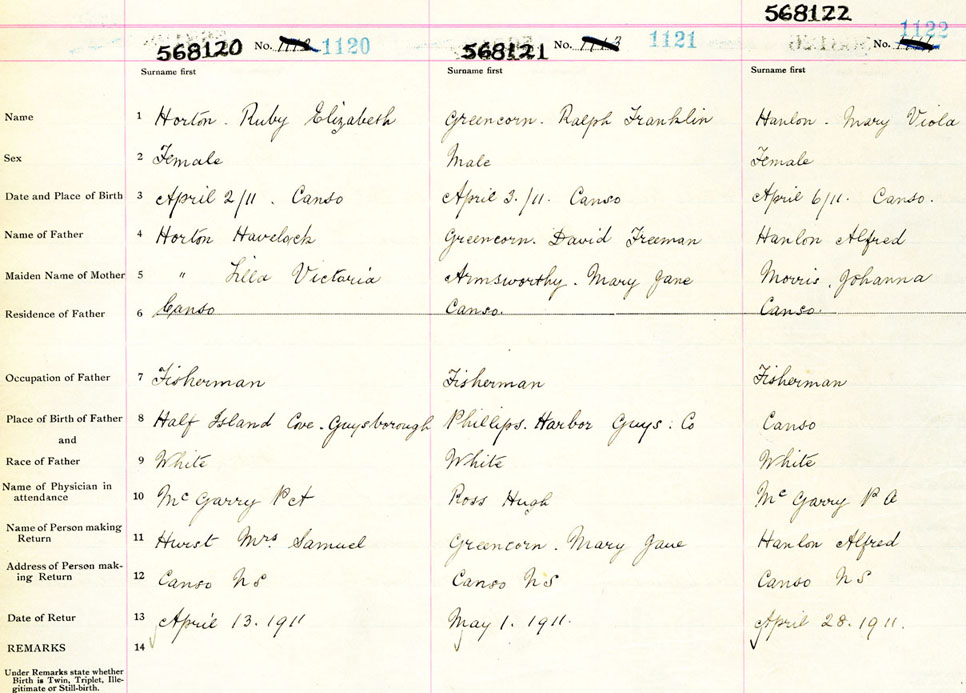 568122
568120 No. 1120 568121 No. 1121 No. 1122
Surname first Surname first Surname first
Name 1 Horton. Ruby Elizabeth Greencorn. Ralph Franklin Hanlon. Mary Viola
Sex 2 Female Male Female
Date and Place of Birth 3 April 2/11. Canso April 3./11. Canso April 6/11. Canso.
Name of Father 4 Horton Havelock Greencorn. David Freeman Hanlon Alfred
Maiden Name of Mother 5 " Lilla Victoria Armsworthy. Mary Jane Morris, Johanna
Residence of Father 6 Canso Canso. Canso.
Occupation of Father 7 Fisherman Fisherman Fisherman
Place of Birth of Father 8 Half Island Cove. Guysborough Phillips. Harbor Guys: Co Canso
and
Race of Father 9 White White White
Name of Physician in
attendance 10 Mc Garry Ross Hugh Mc Garry P A
Name of Person making
Return 11 Hurst Mrs Samuel Greencorn. Mary Jane Hanlon Alfred
Address of Person mak-
ing Return 12 Canso NS Canso NS Canso NS
Date of Retur 13 April 13. 1911 May 1. 1911. April 28. 1911.
REMARKS 14
Under Remarks state whether
Birth is Twin, Triplet, Ille-
gitimate or Still-birth.